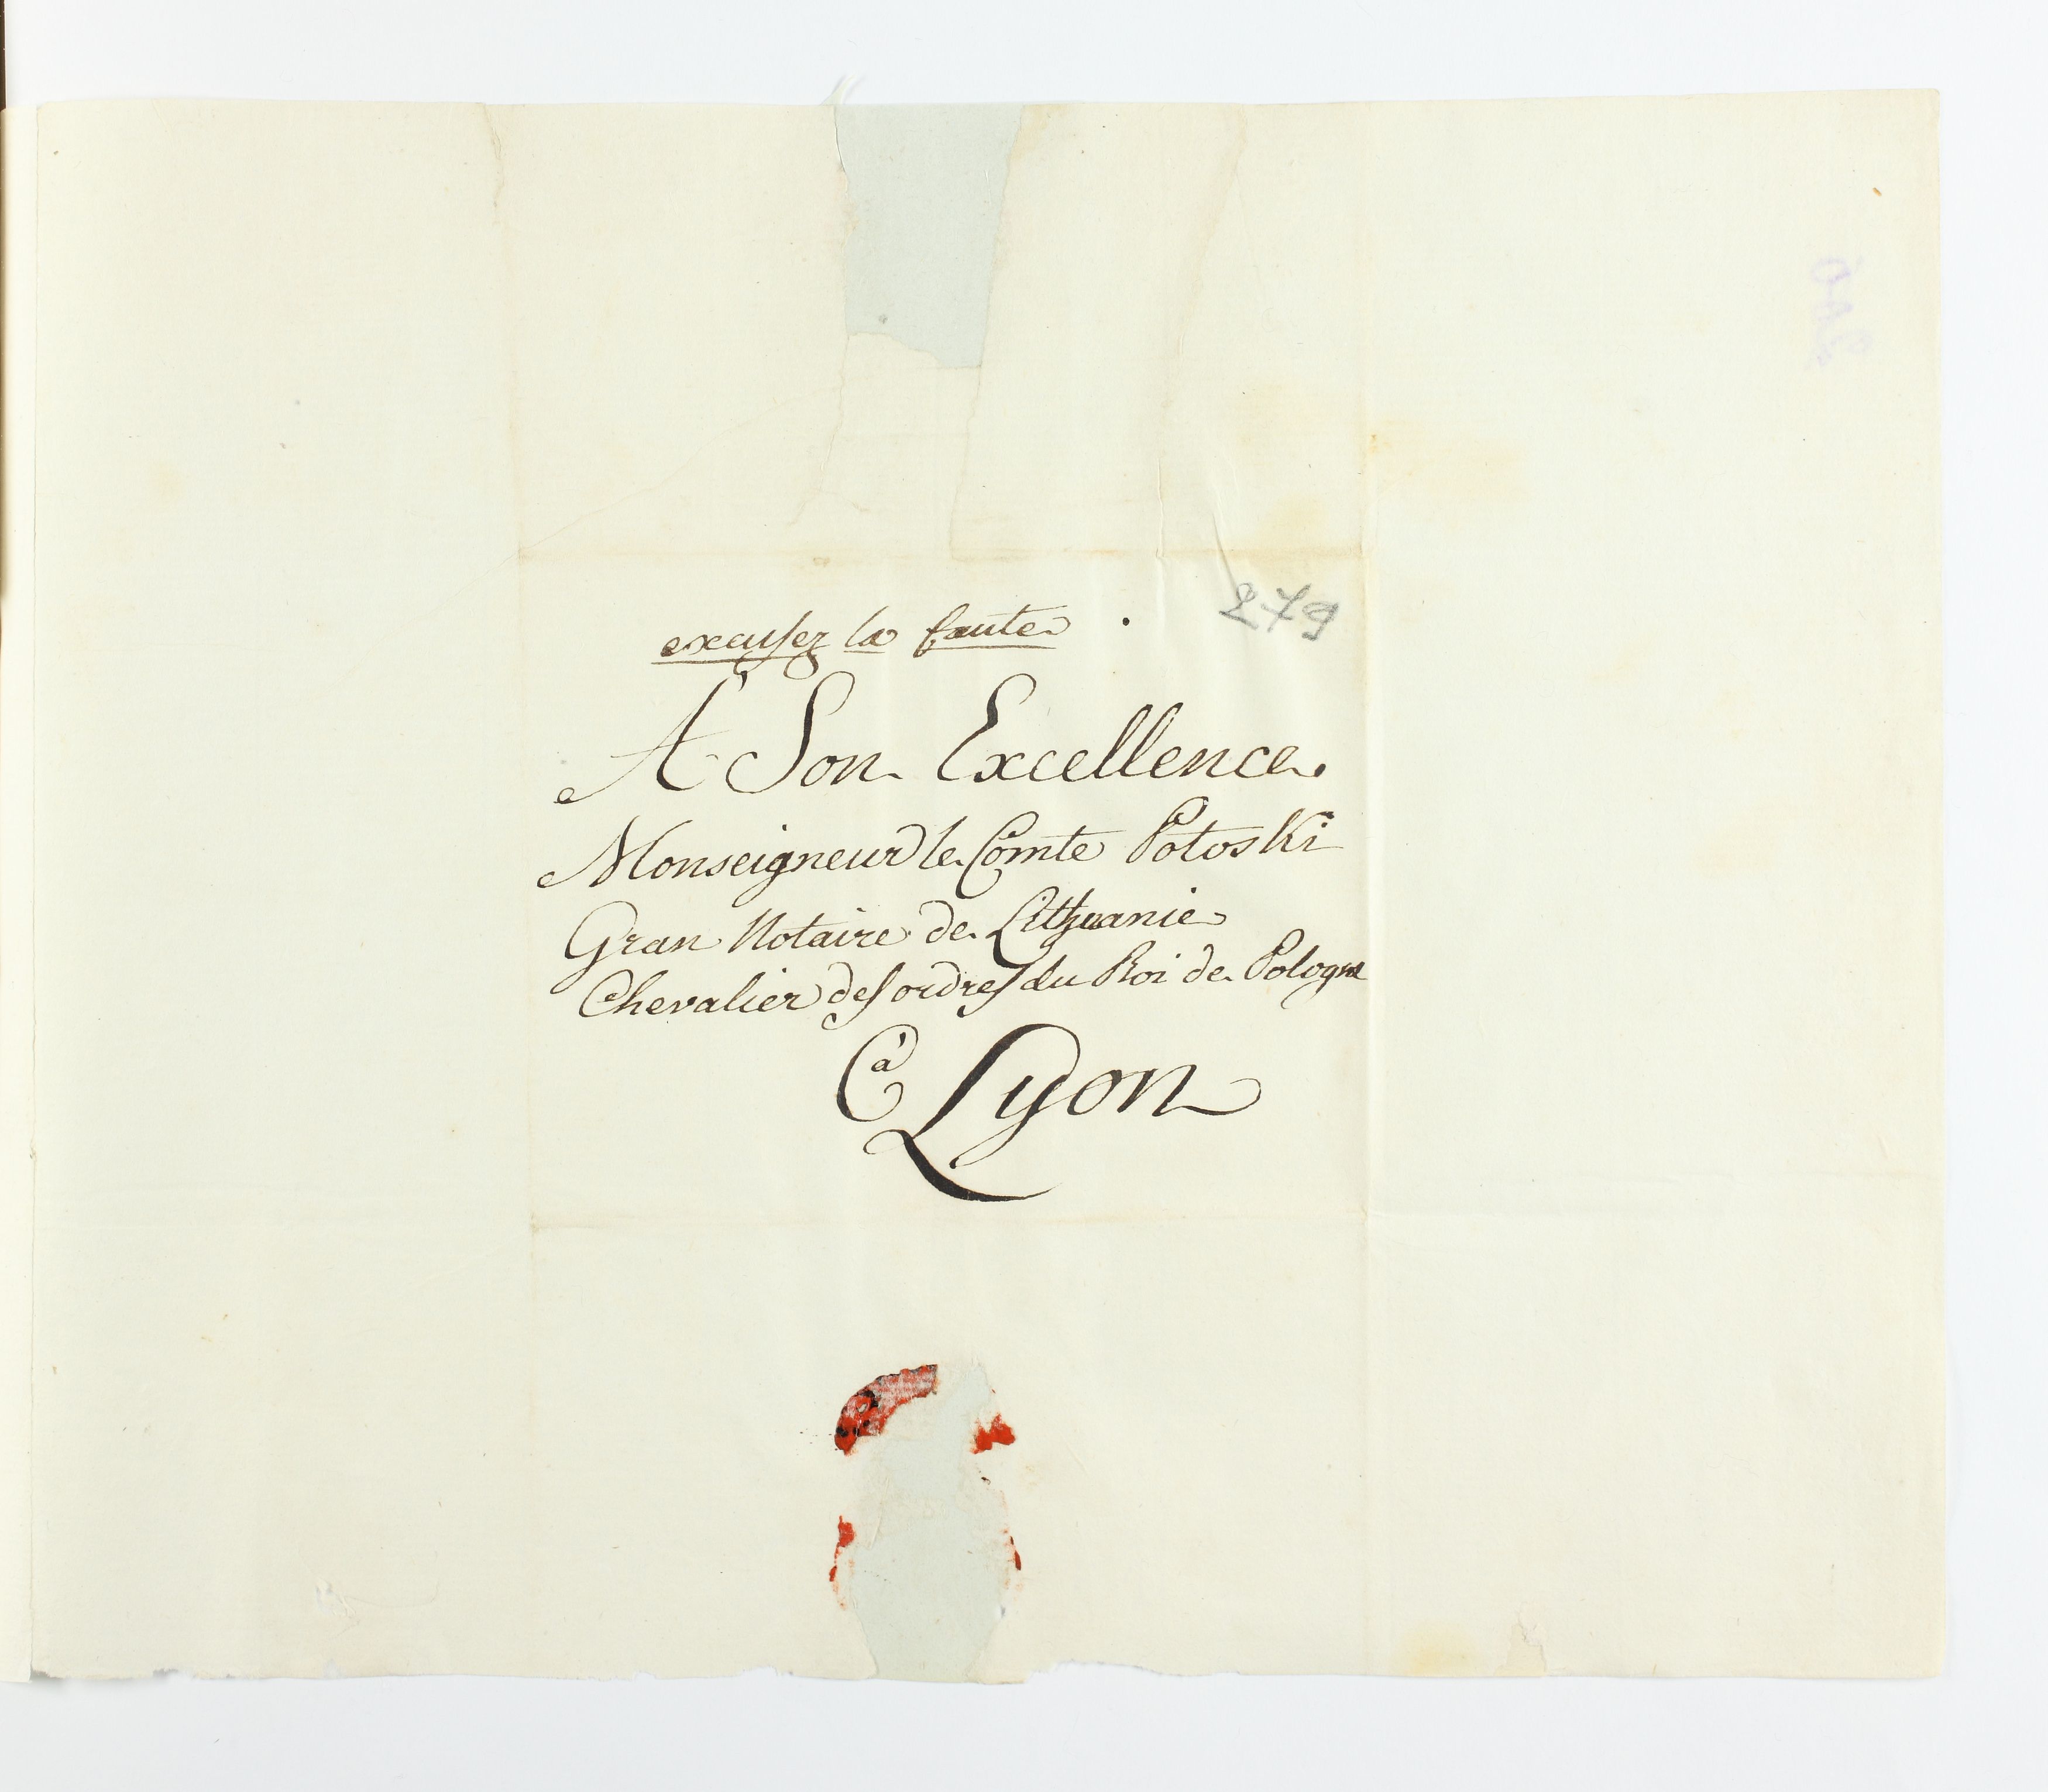 279
excusez la faute
A Son Excellence
Monseigneur le Comte Potoski
Gran Notaire de Lithuanie
Chevalier des ordres du Roi de Pologne
à Lyon